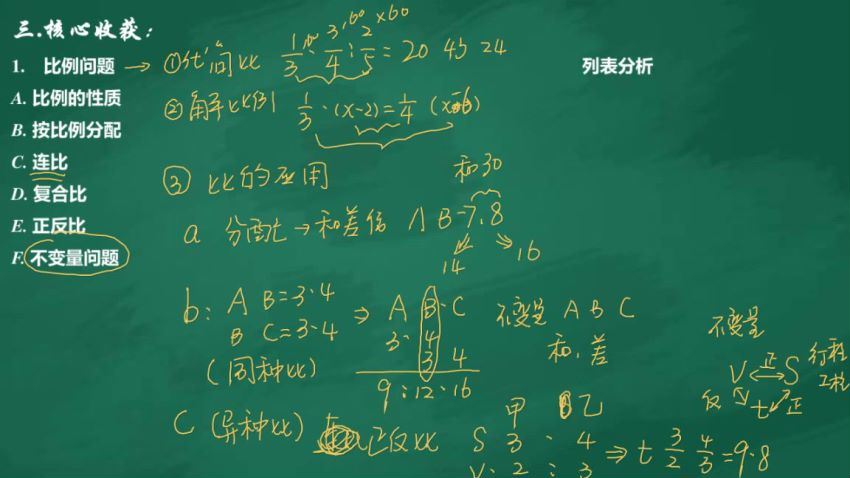 三.核心收获：
1. 比例问题 → ①化简比 1/3 : 3/4 : 2/5 = 20 45 24
×60
列表分析
A. 比例的性质
②解比例 1/3·(x-2)=1/4
B. 按比例分配
C. 连比
③ 比的应用
和30
D. 复合比
E. 正反比
a 分配比→和差倍 A B=7:8
14 16
F. 不变量问题
b: A B=3·4 ⇒ A B·C
B C=3·4
3· 4
3 4
(同种比)
9:12·16
不变量 A B C
和、差
不变量
V 正 S 行程
工程
反 t 正
C (异种比) 正反比
甲 乙
S 3 · 4 ⇒ t 3/2 4/3 =9·8
V· 2 : 3